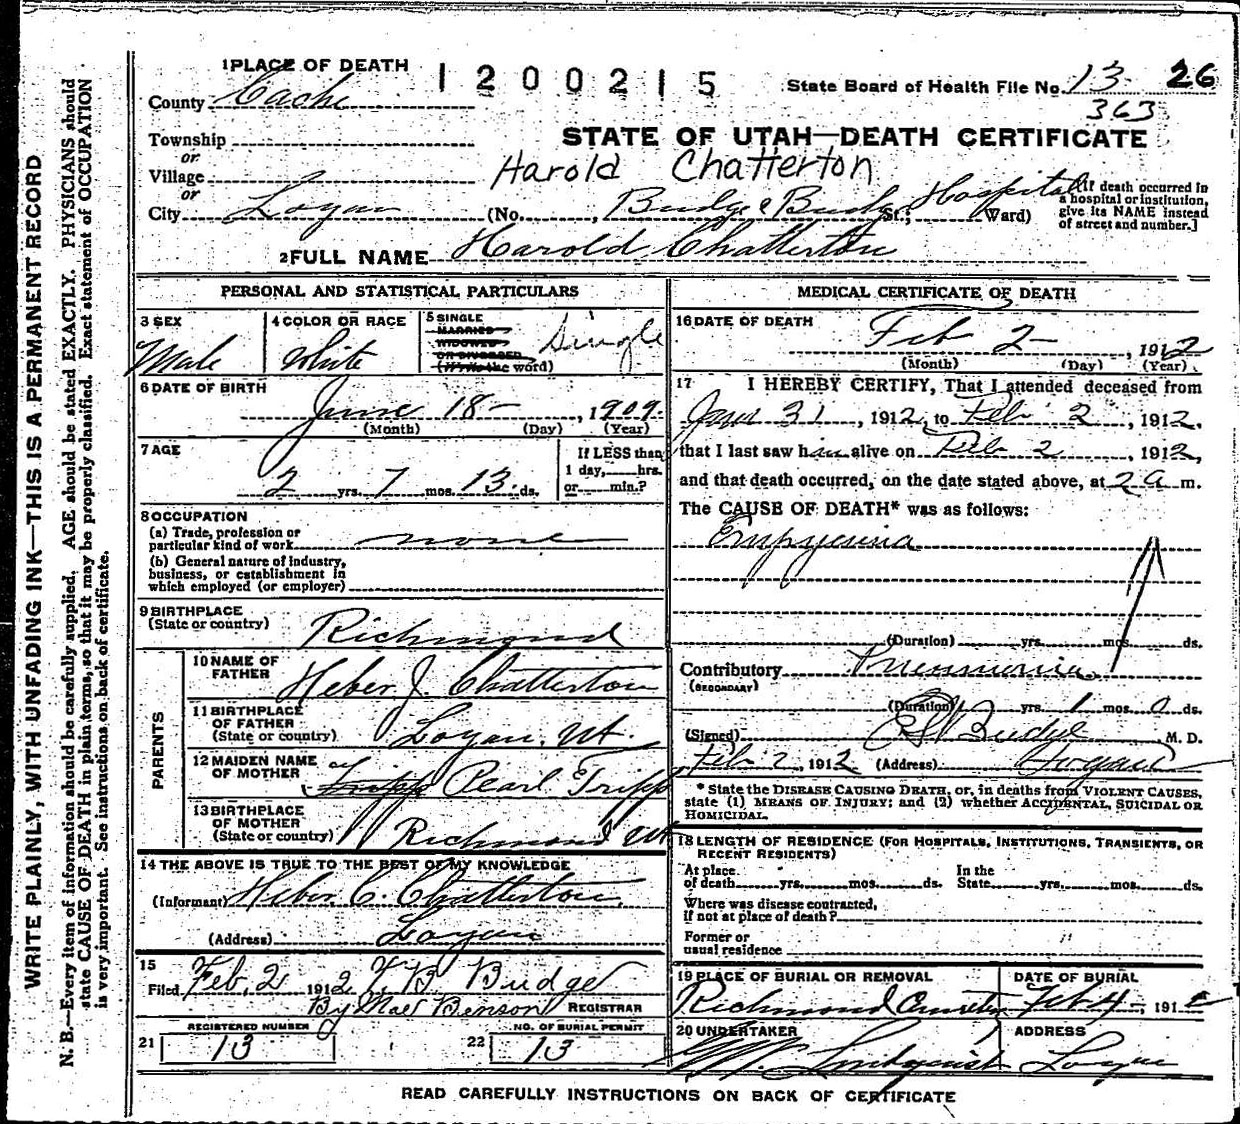 1 PLACE OF DEATH
1200215
State Board of Health File No. 13 26
363
County Cache
Township
or
Village
or
City Logan (No. , Budge & Budge St.; Hospital Ward)
[If death occurred in a hospital or institution, give its NAME instead of street and number.]
STATE OF UTAH—DEATH CERTIFICATE
Harold Chatterton
2 FULL NAME Harold Chatterton
PERSONAL AND STATISTICAL PARTICULARS
3 SEX
Male
4 COLOR OR RACE
White
5 SINGLE
MARRIED
WIDOWED
OR DIVORCED
(Write the word)
Single
6 DATE OF BIRTH
June 18 - , 1909.
(Month) (Day) (Year)
7 AGE
2 yrs. 7 mos. 13 ds.
If LESS than
1 day, hrs.
or min.?
8 OCCUPATION
(a) Trade, profession or
particular kind of work none
(b) General nature of industry,
business, or establishment in
which employed (or employer)
9 BIRTHPLACE
(State or country) Richmond
PARENTS
10 NAME OF
FATHER Heber J. Chatterton
11 BIRTHPLACE
OF FATHER
(State or country) Logan, Ut.
12 MAIDEN NAME
OF MOTHER Tripp Pearl Tripp
13 BIRTHPLACE
OF MOTHER
(State or country) Richmond Ut
14 THE ABOVE IS TRUE TO THE BEST OF MY KNOWLEDGE
(Informant) Heber C. Chatterton
(Address) Logan
15
Filed Feb, 2 1912 T. B. Budge
By Mae Benson REGISTRAR
REGISTERED NUMBER
21 13
NO. OF BURIAL PERMIT
22 13
MEDICAL CERTIFICATE OF DEATH
16 DATE OF DEATH
Feb 2 - , 1912
(Month) (Day) (Year)
17 I HEREBY CERTIFY, That I attended deceased from
Jan 31 , 1912, to Feb 2 , 1912,
that I last saw him alive on Feb 2 , 1912,
and that death occurred, on the date stated above, at 2 a m.
The CAUSE OF DEATH* was as follows:
Empyemia
(Duration) yrs. mos. ds.
Contributory Pneumonia
(SECONDARY)
(Duration) yrs. 1 mos. 0 ds.
(Signed) Budge M. D.
Feb 2, 1912 (Address) Logan
* State the DISEASE CAUSING DEATH, or, in deaths from VIOLENT CAUSES,
state (1) MEANS OF INJURY; and (2) whether ACCIDENTAL, SUICIDAL OR
HOMICIDAL.
18 LENGTH OF RESIDENCE (FOR HOSPITALS, INSTITUTIONS, TRANSIENTS, OR
RECENT RESIDENTS)
At place
of death yrs. mos. ds.
In the
State yrs. mos. ds.
Where was disease contracted,
if not at place of death?
Former or
usual residence
19 PLACE OF BURIAL OR REMOVAL
Richmond
DATE OF BURIAL
Feb 4 - , 1912
20 UNDERTAKER
Lindquist
ADDRESS
Logan
READ CAREFULLY INSTRUCTIONS ON BACK OF CERTIFICATE
WRITE PLAINLY, WITH UNFADING INK—THIS IS A PERMANENT RECORD
N. B.—Every item of information should be carefully supplied. AGE should be stated EXACTLY. PHYSICIANS should
state CAUSE OF DEATH in plain terms, so that it may be properly classified. Exact statement of OCCUPATION
is very important. See instructions on back of certificate.